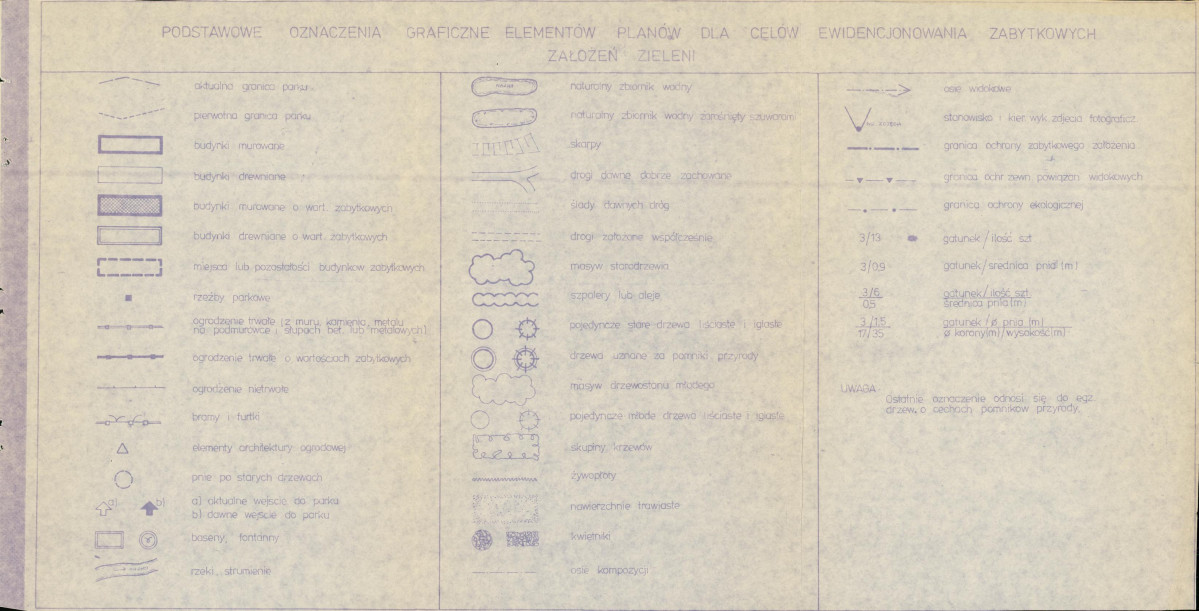 PODSTAWOWE OZNACZENIA GRAFICZNE ELEMENTÓW PLANÓW DLA CELÓW EWIDENCJONOWANIA ZABYTKOWYCH
ZAŁOŻEŃ ZIELENI
aktualna granica parku
pierwotna granica parku
budynki murowane
budynki drewniane
budynki murowane o wart. zabytkowych
budynki drewniane o wart. zabytkowych
miejsca lub pozostałości budynków zabytkowych
rzeźby parkowe
ogrodzenie trwałe (z muru, kamienia, metalu
na podmurówce i słupach bet. lub metalowych)
ogrodzenie trwałe o wartościach zabytkowych
ogrodzenie nietrwałe
bramy i furtki
elementy architektury ogrodowej
pnie po starych drzewach
a) b) a) aktualne wejście do parku
b) dawne wejście do parku
baseny, fontanny
rzeki, strumienie
naturalny zbiornik wodny
naturalny zbiornik wodny zarośnięty szuwarami
skarpy
drogi dawne dobrze zachowane
ślady dawnych dróg
drogi założone współcześnie
masyw starodrzewia
szpalery lub aleje
pojedyncze stare drzewa liściaste i iglaste
drzewa uznane za pomniki przyrody
masyw drzewostanu młodego
pojedyncze młode drzewa liściaste i iglaste
skupiny krzewów
żywopłoty
nawierzchnie trawiaste
kwietniki
osie kompozycji
osie widokowe
stanowisko i kier. wyk. zdjęcia fotograficz.
granica ochrony zabytkowego założenia
granica ochr. zewn. powiązań widokowych
granica ochrony ekologicznej
3/13 gatunek/ilość szt.
3/0.9 gatunek/średnica pnia (m)
3/6 gatunek/ilość szt.
0.5 średnica pnia (m)
3/1.5 gatunek/ø pnia (m)
17/35 ø korony(m)/wysokość(m)
UWAGA:
Ostatnie oznaczenie odnosi się do egz.
drzew o cechach pomników przyrody.